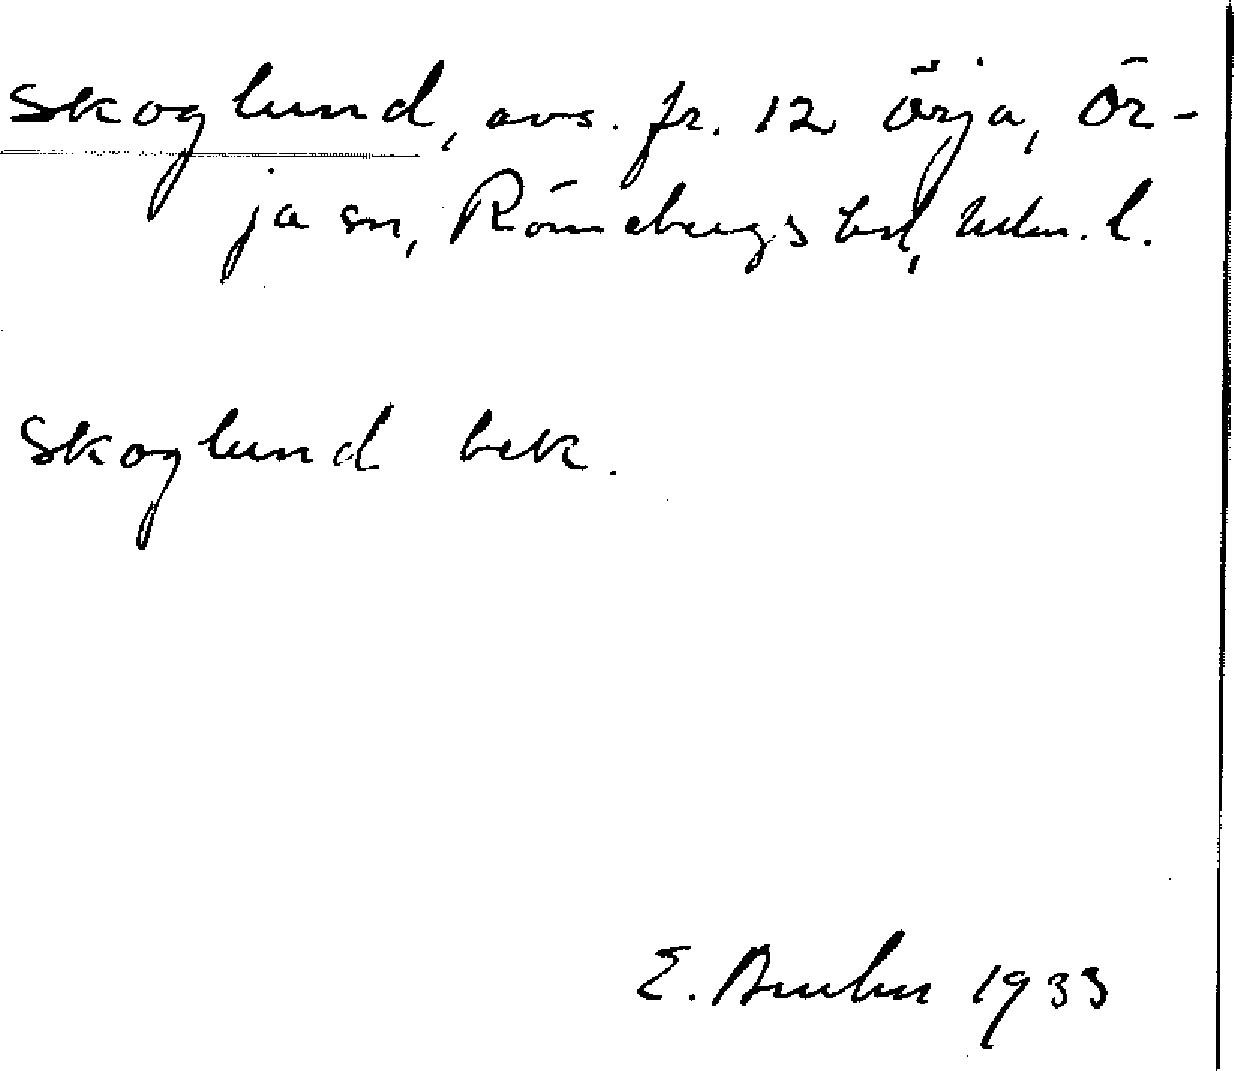 Skoglund, avs. fr. 12 Örja, Ör-
ja sn, Rönnebergs hd, Mlm. l.
Skoglund bek.
E. 1933